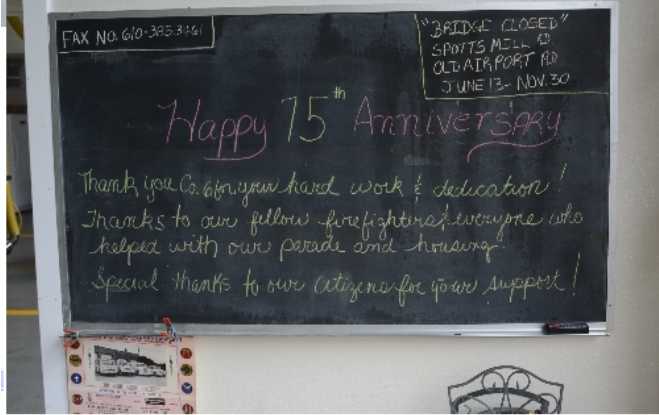 FAX No. 610-385-3761
"BRIDGE CLOSED"
SPOTTS MILL RD.
OLD AIRPORT RD
JUNE 13 - NOV. 30
Happy 75th Anniversary
Thank you Co. 69 for your hard work & dedication!
Thanks to our fellow firefighters & everyone who
helped with our parade and housing.
Special thanks to our citizens for your support!